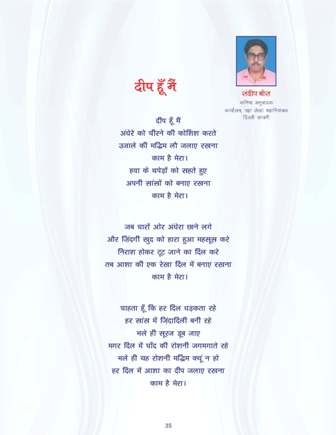 दीप हूँ मैं
संदीप बोस
कनिष्ठ अनुवादक
कार्यालय, महा लेखा
दीप हूँ मैं
अंधेरे को चीरने की कोशिश करते
उजाले की मद्धिम लौ जलाए रखना
काम है मेरा।
हवा के थपेड़ों को सहते हुए
अपनी सांसों को बनाए रखना
काम है मेरा।
जब चारों ओर अंधेरा छाने लगे
और जिंदगी खुद को हारा हुआ महसूस करे
निराश होकर टूट जाने का दिल करे
तब आशा की एक रेखा दिल में बनाए रखना
काम है मेरा।
चाहता हूँ कि हर दिल धड़कता रहे
हर सांस में जिंदादिली बनी रहे
भले ही सूरज डूब जाए
मगर दिल में चाँद की रोशनी जगमगाते रहे
भले ही वह रोशनी मद्धिम क्यूं न हो
हर दिल में आशा का दीप जलाए रखना
काम है मेरा।
35